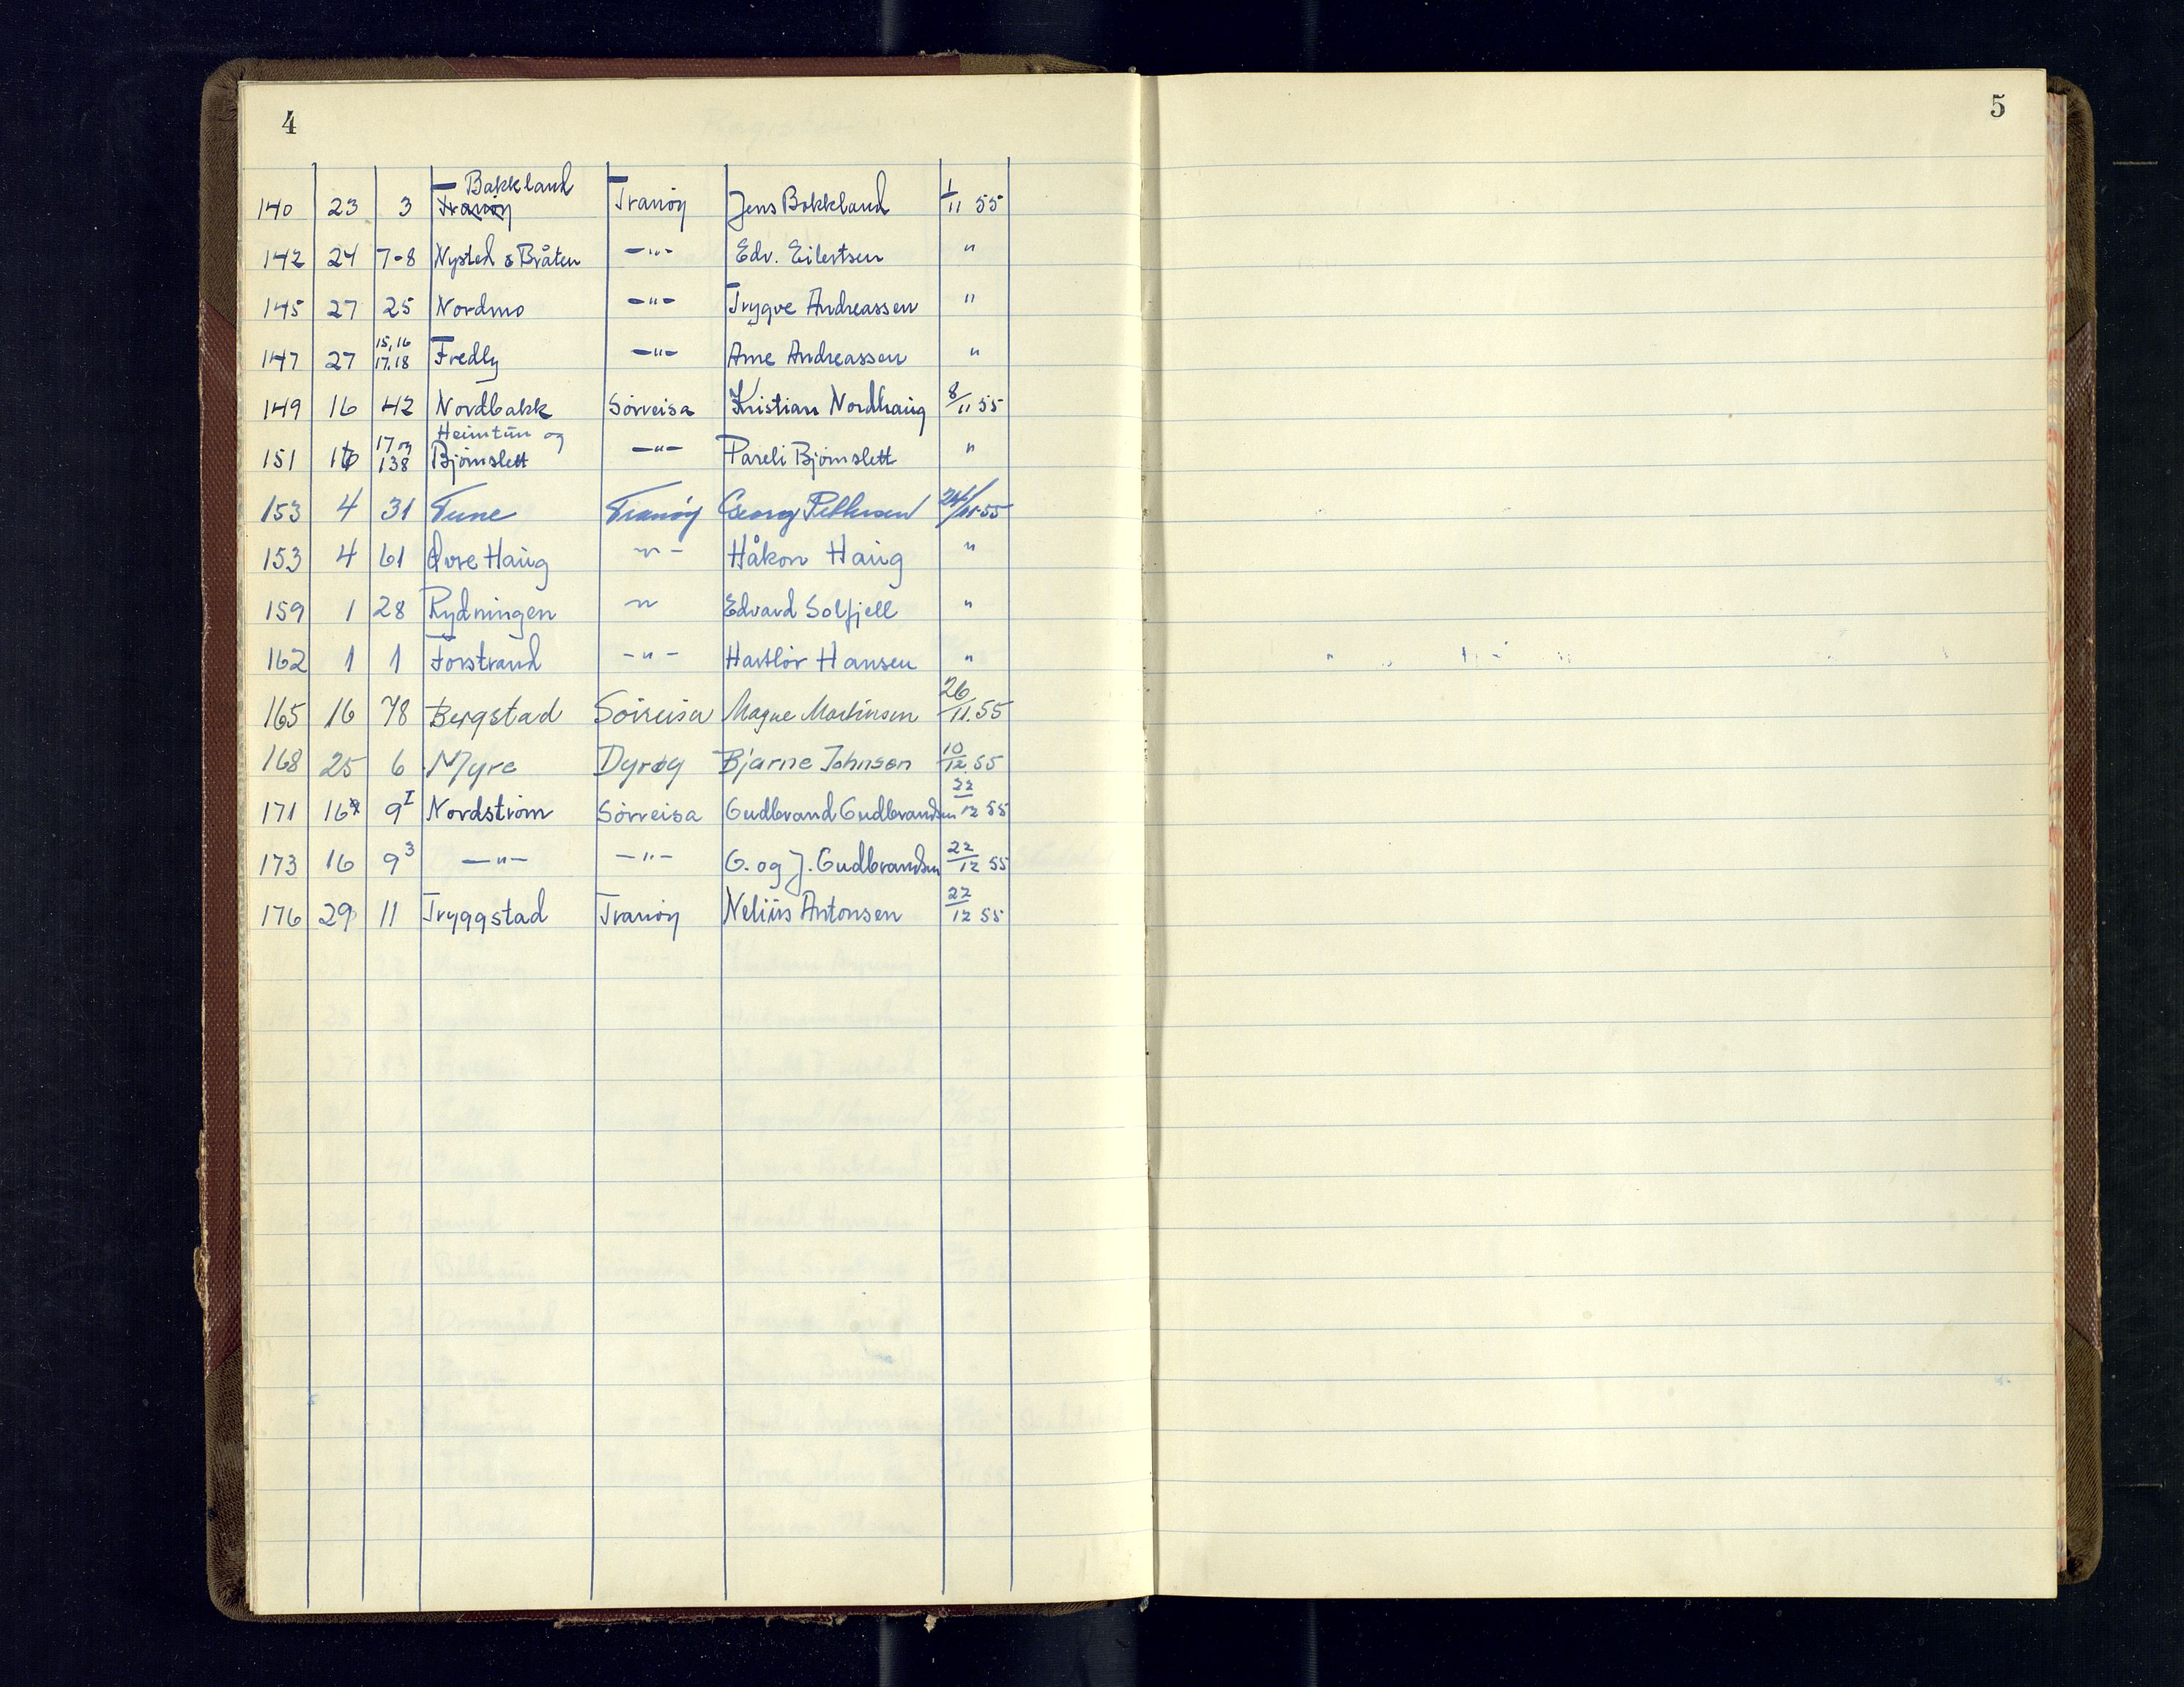 4
5
Bakkland
140 23 3 Tranöy Tranöy Jens Bakkland 1/11 55
142 24 7-8 Nysted & Bråten -"- Edv. Eilertsen "
145 27 25 Nordmo -"- Trygve Andreassen "
15,16
147 27 17.18 Fredly -"- Arne Andreassen "
149 16 42 Nordbakk Sörreisa Kristian Nordhaug 8/11 55
17 og Heimtun og
151 16 138 Björnslett -"- Pareli Bjørnslett "
153 4 31 Tune Tranöy Georg Pettersen 24/11-55
153 4 61 Øvre Haug -"- Håkon Haug "
159 1 28 Rydningen " Edvard Solfjell "
162 1 1 Forstrand -"- Hartlör Hansen "
165 16 78 Bergstad Sörreisa Magne Martinsen 26/11.55
168 25 6 Myre Dyrøy Bjarne Johnsen 10/12 55
171 16 9I Nordström Sörreisa Gudbrand Gudbrandsen 22/12 55
173 16 9³ -"- -"- G. og J. Gudbrandsen 22/12 55
176 29 11 Tryggstad Tranöy Nelius Antonsen 22/12 55